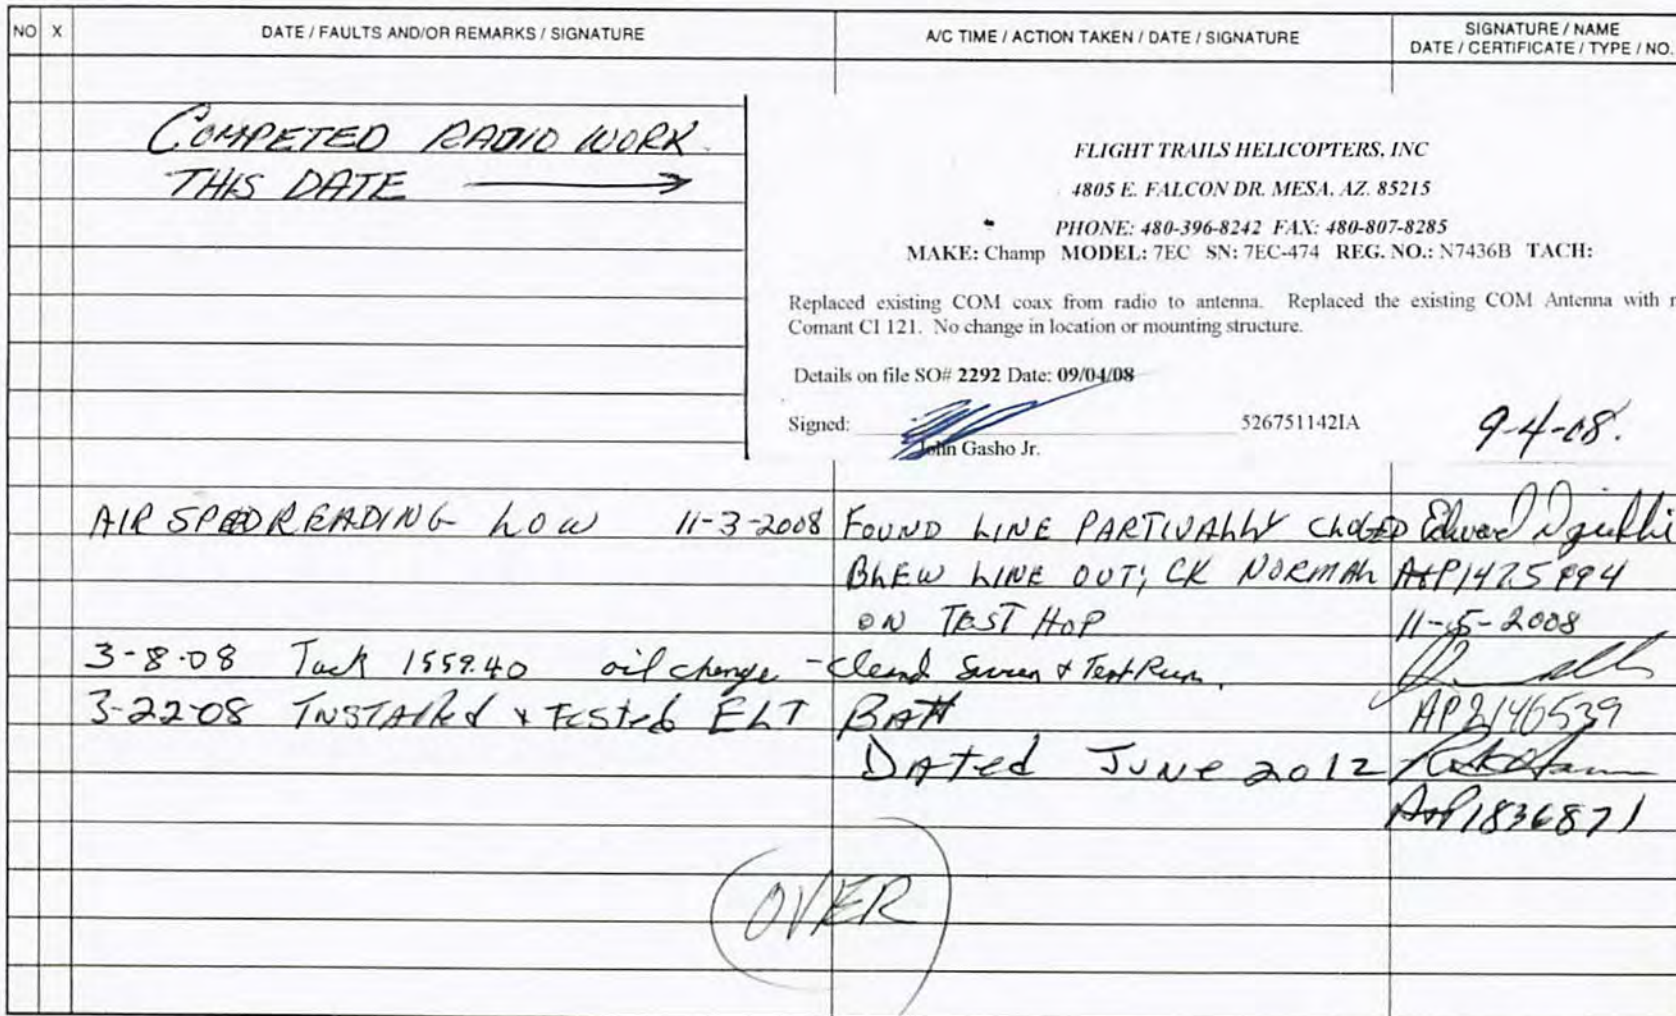 NO X DATE / FAULTS AND/OR REMARKS / SIGNATURE A/C TIME / ACTION TAKEN / DATE / SIGNATURE SIGNATURE / NAME
DATE / CERTIFICATE / TYPE / NO.
COMPETED RADIO WORK
THIS DATE
FLIGHT TRAILS HELICOPTERS, INC
4805 E. FALCON DR. MESA, AZ. 85215
PHONE: 480-396-8242 FAX: 480-807-8285
MAKE: Champ MODEL: 7EC SN: 7EC-474 REG. NO.: N7436B TACH:
Replaced existing COM coax from radio to antenna. Replaced the existing COM Antenna with
Comant CI 121. No change in location or mounting structure.
Details on file SO# 2292 Date: 09/04/08
Signed: 526751142IA 9-4-08.
John Gasho Jr.
AIR SPEED READING LOW 11-3-2008 FOUND LINE PARTIVALLY Edward
BLEW LINE OUT; CK NORMAL
ON TEST HOP 11-5-2008
3-8-08 Tach 1559.40 oil change - Cleand Screen & Test Run.
3-22-08 INSTALLed & TESTed ELT BATT AP2146539
DATed JUNe 2012
A&P1836871
OVER